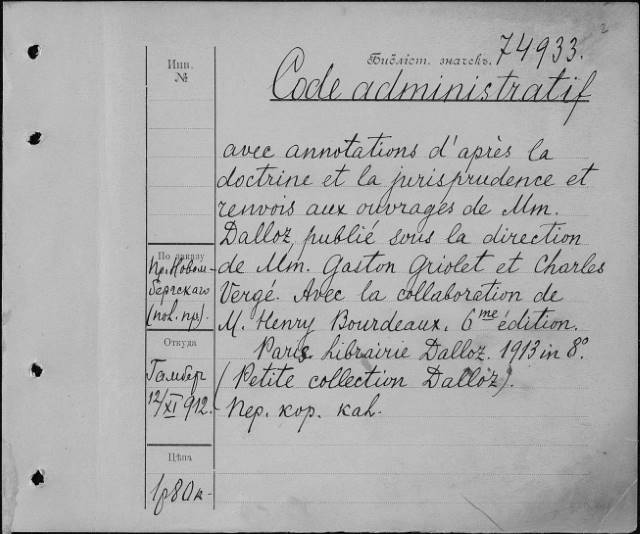 2
Инв.
№
Библіот. значекъ.
74933.
Code administratif
avec annotations d'après la
doctrine et la jurisprudence et
renvois aux ouvrages de Mm.
Dalloz, publié sous la direction
de Mm. Gaston Griolet et Charles
Vergé. Avec la collaboration de
M. Henry Bourdeaux. 6me édition.
Paris. Librairie Dalloz. 1913 in 8º.
(Petite collection Dalloz).
Пер. кор. кал.
По заказу
Пр. Новом-
бергскаго
Откуда
Гамбер
12/XI 912.
Цѣна
1р 80к-